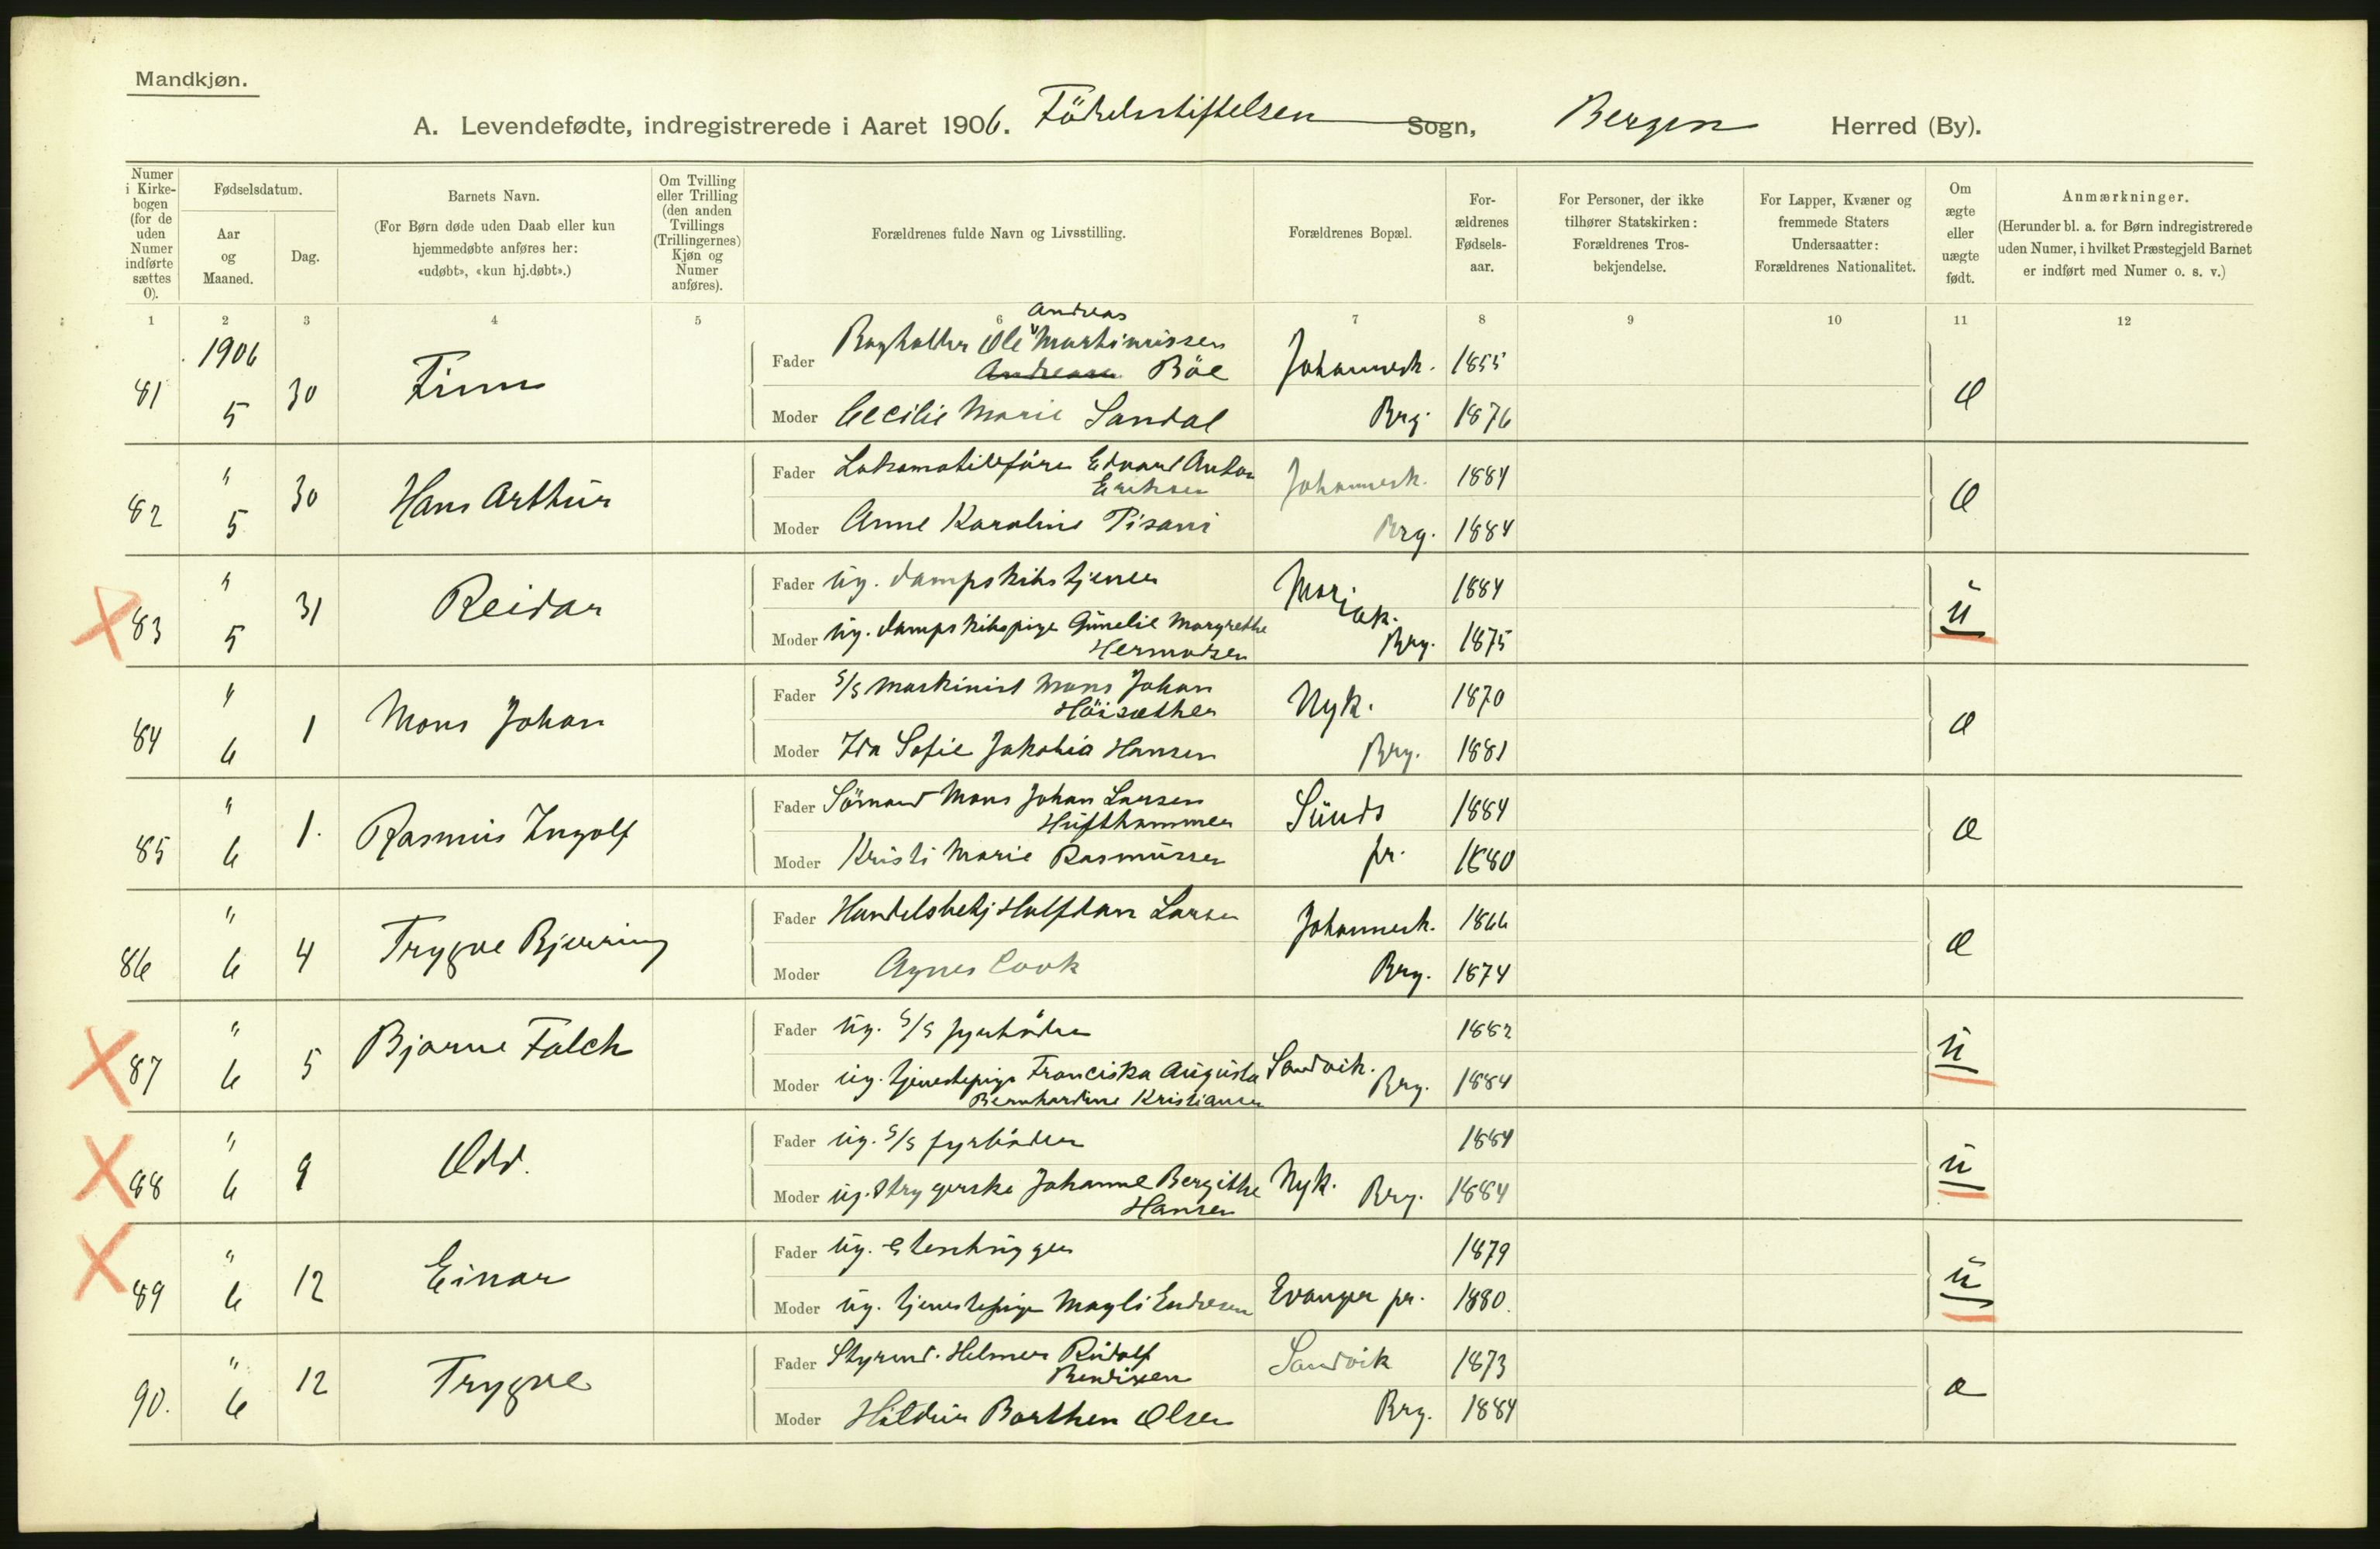 Mandkjøn.
A. Levendefødte, indregistrerede i Aaret 1906. Födselsstiftelsen Sogn, Bergen Herred (By).
Numer i Kirkebogen (for de uden Numer indførte sættes 0).
Fødselsdatum.
Aar og Maaned.
Dag.
Barnets Navn.
(For Børn døde uden Daab eller kun hjemmedøbte anføres her: «udøbt», «kun hj.døbt».)
Om Tvilling eller Trilling (den anden Tvillings (Trillingernes) Kjøn og Numer anføres).
Forældrenes fulde Navn og Livsstilling.
Forældrenes Bopæl.
Forældrenes Fødselsaar.
For Personer, der ikke tilhører Statskirken: Forældrenes Trosbekjendelse.
For Lapper, Kvæner og fremmede Staters Undersaatter: Forældrenes Nationalitet.
Om ægte eller uægte født.
Anmærkninger.
(Herunder bl. a. for Børn indregistrerede uden Numer, i hvilket Præstegjeld Barnet er indført med Numer o. s. v.)
1 2 3 4 5 6 7 8 9 10 11 12
Andreas
81 1906 5 30 Finn Fader Bogholder Ole Martiniussen Johannesk. 1855 æ
Andreasen Böe
Moder Cecilie Marie Sandal Brg. 1876
82 " 5 30 Hans Arthur Fader Lokomotivförer Edvard Anton Johannesk. 1884 æ
Eriksen
Moder Anne Karoline Pisani Brg. 1884
83 " 5 31 Reidar Fader ug. dampskibstjener Mariak. 1884 u
Moder ug. dampskibspige Gunelie Margrethe Brg. 1875
Hermodsen
84 " 6 1 Mons Johan Fader S/S Maskinist Mons Johan Nyk. 1870 æ
Höisæther
Moder Ida Sofie Jakobia Hansen Brg. 1881
85 " 6 1. Rasmus Ingolf Fader Sömand Mons Johan Larsen Sunds 1884 æ
Hufthammer
Moder Kristi Marie Rasmussen pr. 1880
86 " 6 4 Trygve Bjerring Fader Handelsbetj Halfdan Larsen Johannesk. 1866 æ
Moder Agnes Cook Brg. 1874
87 " 6 5 Bjarne Falch Fader ug. S/S fyrböder 1882 u
Moder ug. tjenestepige Franciska Augusta Sandvik. Brg. 1884
Bernhardine Kristiansen
88 " 6 9 Odd. Fader ug. S/S fyrböder 1884 u
Moder ug. Strygerske Johanne Bergithe Nyk. Brg. 1884
Hansen
89 " 6 12 Einar Fader ug. Stenhugger 1879 u
Moder ug. tjenestepige Magli Endresen Evanger pr. 1880.
90. " 6 12 Trygve Fader Styrmd. Helmer Rudolf Sandvik 1873 æ
Bendixen
Moder Hildur Barthen Olsen Brg. 1884